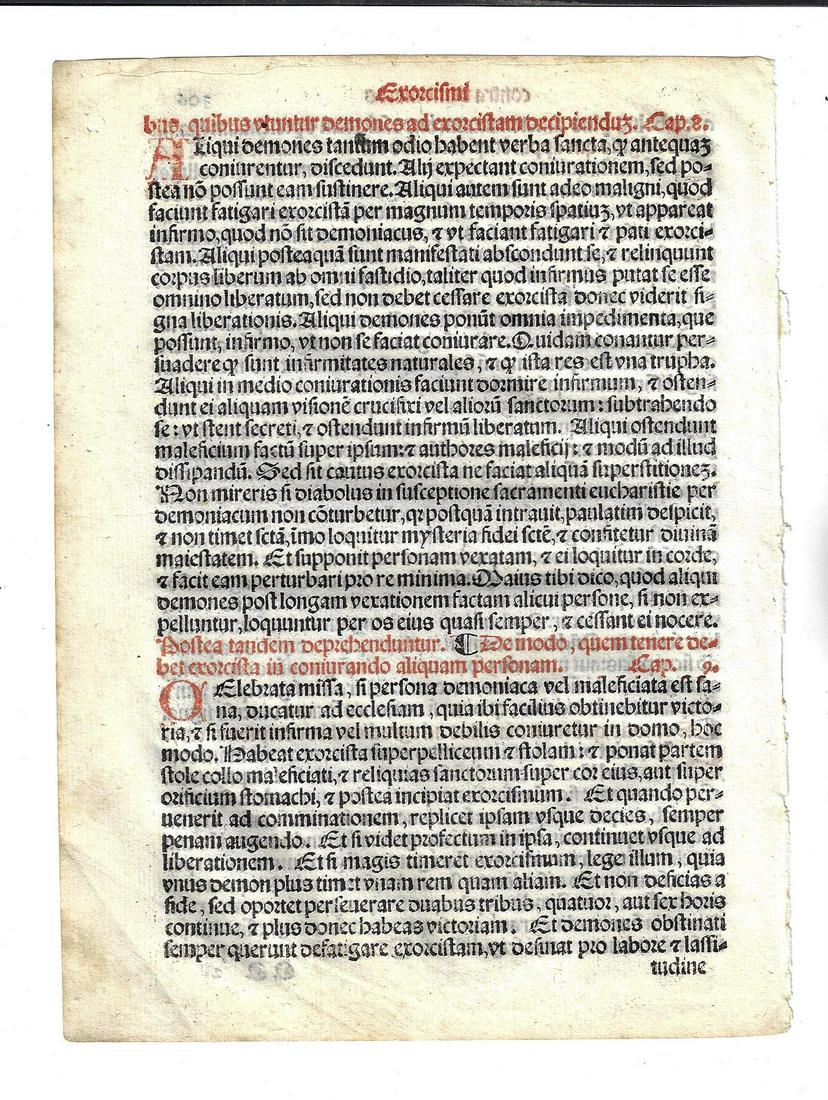 Exorcismi
bus, quibus vtuntur demones ad exorcistam decipienduȝ. Cap. 8.
ALiqui demones tantum odio habent verba sancta, ꝙ antequaȝ
coniurentur, discedunt. Alij expectant coniurationem, sed po-
stea nō possunt eam sustinere. Aliqui autem sunt adeo maligni, quod
faciunt fatigari exorcistā per magnum temporis spatiuȝ, vt appareat
infirmo, quod nō sit demoniacus, ⁊ vt faciant fatigari ⁊ pati exorci-
stam. Aliqui posteaquā sunt manifestati abscondunt se, ⁊ relinquunt
corpus liberum ab omni fastidio, taliter quod infirmus putat se esse
omnino liberatum, sed non debet cessare exorcista donec viderit si-
gna liberationis. Aliqui demones ponūt omnia impedimenta, que
possunt, infirmo, vt non se faciat coniurare. Quidam conantur per-
suadere ꝙ sunt infirmitates naturales, ⁊ ꝙ ista res est vna trupha.
Aliqui in medio coniurationis faciunt dormire infirmum, ⁊ osten-
dunt ei aliquam visionē crucifixi vel aliorū sanctorum: subtrahendo
se: vt stent secreti, ⁊ ostendunt infirmū liberatum. Aliqui ostendunt
maleficium factū super ipsum: ⁊ authores maleficij: ⁊ modū ad illud
dissipandū. Sed sit cautus exorcista ne faciat aliquā superstitioneȝ.
Non mireris si diabolus in susceptione sacramenti eucharistie per
demoniacum non cōturbetur, qꝛ postquā intrauit, paulatim despicit,
⁊ non timet sctā, imo loquitur mysteria fidei sctē, ⁊ confitetur diuinā
maiestatem. Et supponit personam vexatam, ⁊ ei loquitur in corde,
⁊ facit eam perturbari pro re minima. Maius tibi dico, quod aliqui
demones post longam vexationem factam alicui persone, si non ex-
pelluntur, loquuntur per os eius quasi semper, ⁊ cessant ei nocere.
Postea tandem deprehenduntur. ¶ De modo, quem tenere de-
bet exorcista in coniurando aliquam personam. Cap. 9.
CElebrata missa, si persona demoniaca vel maleficiata est sa-
na, ducatur ad ecclesiam, quia ibi facilius obtinebitur victo-
ria, ⁊ si fuerit infirma vel multum debilis coniuretur in domo, hoc
modo. Habeat exorcista superpelliceum ⁊ stolam: ⁊ ponat partem
stole collo maleficiati, ⁊ reliquias sanctorum super cor eius, aut super
orificium stomachi, ⁊ postea incipiat exorcismum. Et quando per-
uenerit ad comminationem, replicet ipsam vsque decies, semper
penam augendo. Et si videt profectum in ipsa, continuet vsque ad
liberationem. Et si magis timeret exorcismum, lege illum, quia
vnus demon plus timet vnam rem quam aliam. Et non deficias a
fide, sed oportet perseuerare duabus tribus, quatuor, aut sex horis
continue, ⁊ plus donec habeas victoriam. Et demones obstinati
semper querunt defatigare exorcistam, vt desinat pro labore ⁊ lassi-
tudine